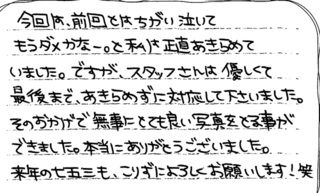 今回は、前回とはちがい泣いて
もうダメかなー。と私は正直あきらめて
いました。ですが、スタッフさんは優しくて
最後まで、あきらめずに対応して下さいました。
そのおかげで無事にとても良い写真をとる事が
できました。本当にありがとうございました。
来年の七五三も、こりずによろしくお願いします!笑